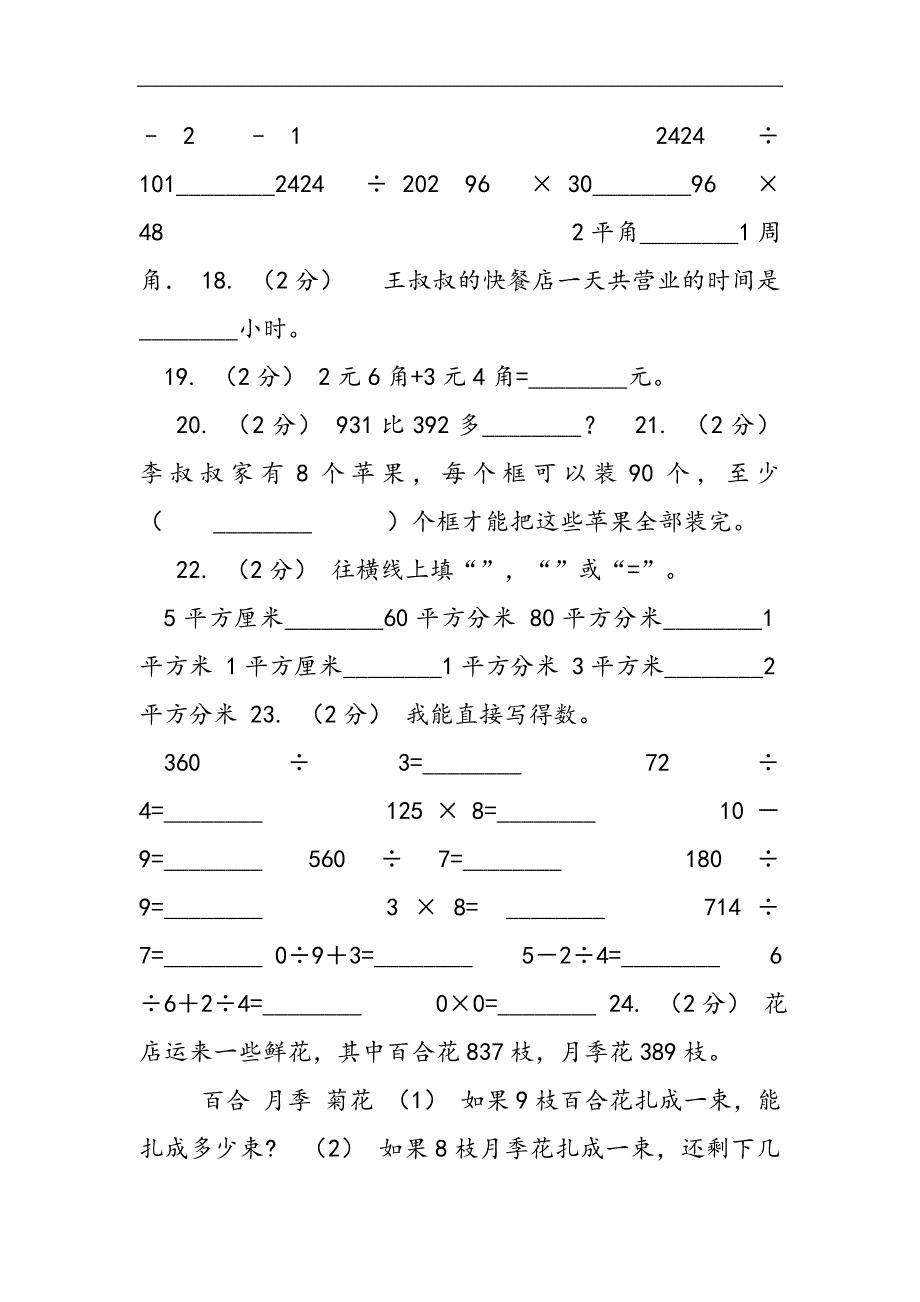 － 2 － 1 2424 ÷
101________2424 ÷ 202 96 × 30________96 ×
48 2平角________1周
角． 18. （2分） 王叔叔的快餐店一天共营业的时间是
________小时。
19. （2分） 2元6角+3元4角=________元。
20. （2分） 931比392多________? 21. （2分）
李叔叔家有8个苹果，每个框可以装90个，至少
（ ________ ）个框才能把这些苹果全部装完。
22. （2分） 往横线上填“”，“”或“=”。
5平方厘米________60平方分米 80平方分米________1
平方米 1平方厘米________1平方分米 3平方米________2
平方分米 23. （2分） 我能直接写得数。
360 ÷ 3=________ 72 ÷
4=________ 125 × 8=________ 10 －
9=________ 560 ÷ 7=________ 180 ÷
9=________ 3 × 8= ________ 714 ÷
7=________ 0÷9＋3=________ 5－2÷4=________ 6
÷6＋2÷4=________ 0×0=________ 24. （2分） 花
店运来一些鲜花，其中百合花837枝，月季花389枝。
百合 月季 菊花 （1） 如果9枝百合花扎成一束，能
扎成多少束? （2） 如果8枝月季花扎成一束，还剩下几